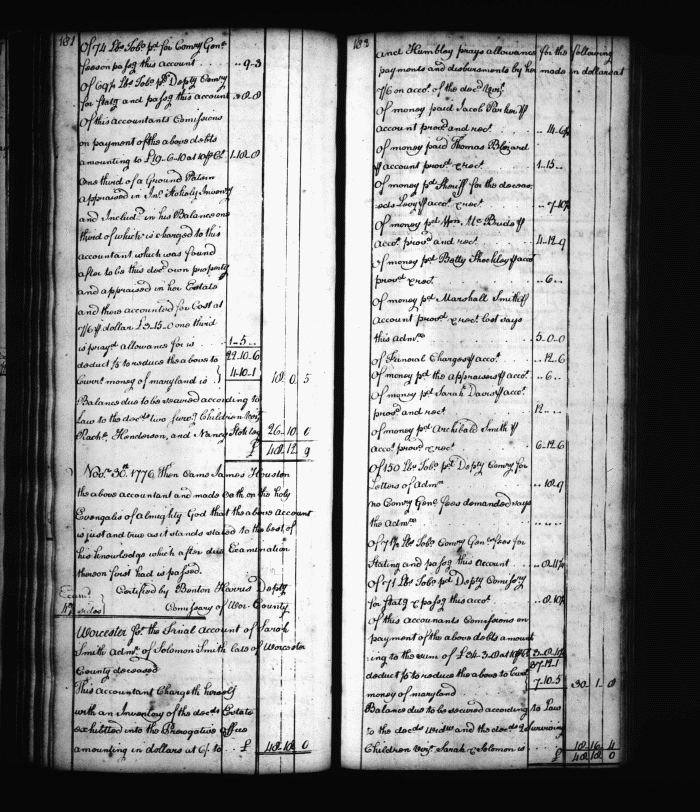 181
Of 74 lbs Tobo pd for Comry Genl
fees on passg this account .. 9-3
Of 69½ lbs Tobo pd Depty Comry
for statg and passg this account .. 8.8
Of this accountants Comissions
on payment of the above debts
amounting to £19-6-10 at 10 P Ct. 1.18.8
One third of a Ground
appraised in Jno Stokely Inventy
and Includd in his Balance one
third of which is charged to this
accountant which was found
after to be this decd own property
and appraised in her Estate
and there accounted for Cost at
7/6 P dollar £3-15-0 one third
is prayed allowance for is 1-5 ..
deduct ⅕ to reduce the above to 22-10-6
Currt money of maryland is 4-10-1 18 0 5
Balance due to be secured according to
Law to the decds two survg Children Vizt
Rachl Henderson, and Nancy Stokley 26 10 0
£ 48 12 9
Novr 30th 1776, then Came James Houston
the above accountant and made Oath on the holy
Evangelis of almighty God that the above account
is just and true as it stands stated to the best of
his knowledge which after due Examination
thereon first had is passed.
Certified by Benton Harris Depty
Comissary of Wor. County
Exam
sides
Worcester Sst. the Final Account of Sarah
Smith Admx of Solomon Smith late of Worcester
County deceased
This Accountant Chargeth herself
with an Inventory of the decds Estate
exhibitted into the Prerogative Office
amounting in dollars at 6/ to £ 48 18 0
182
and Humbley prays allowance for the following
payments and disbursments by her made in dollars at
7/6 on acct of the decd Vizt
Of money paid Jacob Parker P
account provd and rect .. 14.6½
Of money paid Thomas Blizard
P account provd & rect 1.15..
Of money pd Sheriff for the deceas
eds Levy P acct & rect .. 7.10½
Of money pd Wm Mc Bride P
acct provd and rect 4.12.9
Of money pd Betty Shockley P acct
provd & rect .. 6 ..
Of money pd Marshall Smith P
account provd & rect lost says
this Admx 5-0-0
Of Funeral Charges P acct .. 12.6
Of money pd the appraisers P acct .. 6 ..
Of money pd Sarah Davis P acct
provd and rect 12 ..
Of money pd Archibald Smith P
acct provd & rect 6-12-6
Of 150 lbs Tobo pd Depty Comry for
Letters of Admn .. 18.9
no Comry Genl fees demanded says
the Admx .. .. ..
Of 71½ lbs Tobo Comry Genl fees for
Stating and passg this Account .. 8.11¼
Of 71 lbs Tobo pd Depty Comissry
for statg & passg this acct .. 8.10½
Of this Accountants Comissions on
payment of the above debts amount
ing to the sum of £34-3-8 at 10 P Ct 3-8-4½
37-12-1
deduct ⅕ to reduce the above to Curt 7-10.5 30 1 8
money of maryland
Balance due to be secured according to Law
to the decds Widw and the decds 2 surviving
Children Vizt Sarah & Solomon is 18 16 4
£ 48 18 0